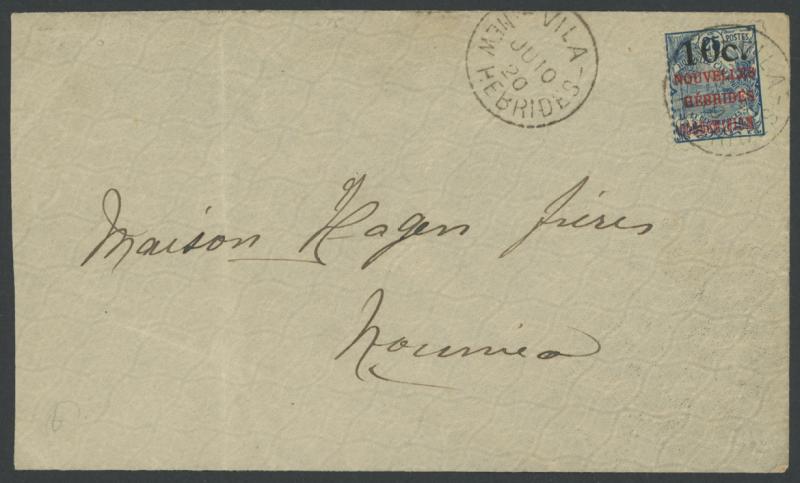 VILA
NEW
JU 10
20
HEBRIDES
POSTES
10c.
NOUVELLES
HÉBRIDES
VILA
Maison Hagen frères
Nouméa
6